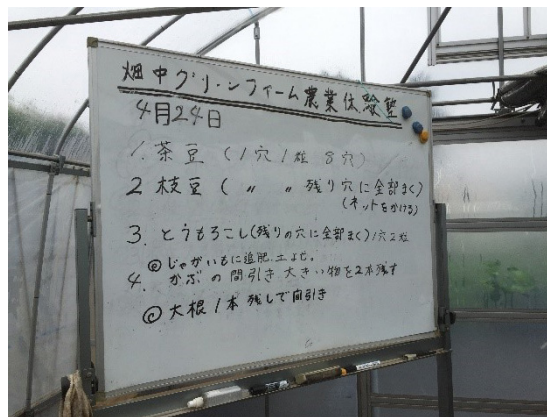 畑中グリーンファーム農業体験塾
4月24日
1. 茶豆(1穴1粒 8穴)
2 枝豆(〃 〃 残り穴に全部まく)
(ネットをかける)
3. とうもろこし(残りの穴に全部まく)1穴2粒
◎じゃがいもに追肥、土よせ。
4. かぶの間引き 大きい物を2本残す
◎大根1本残しで間引き